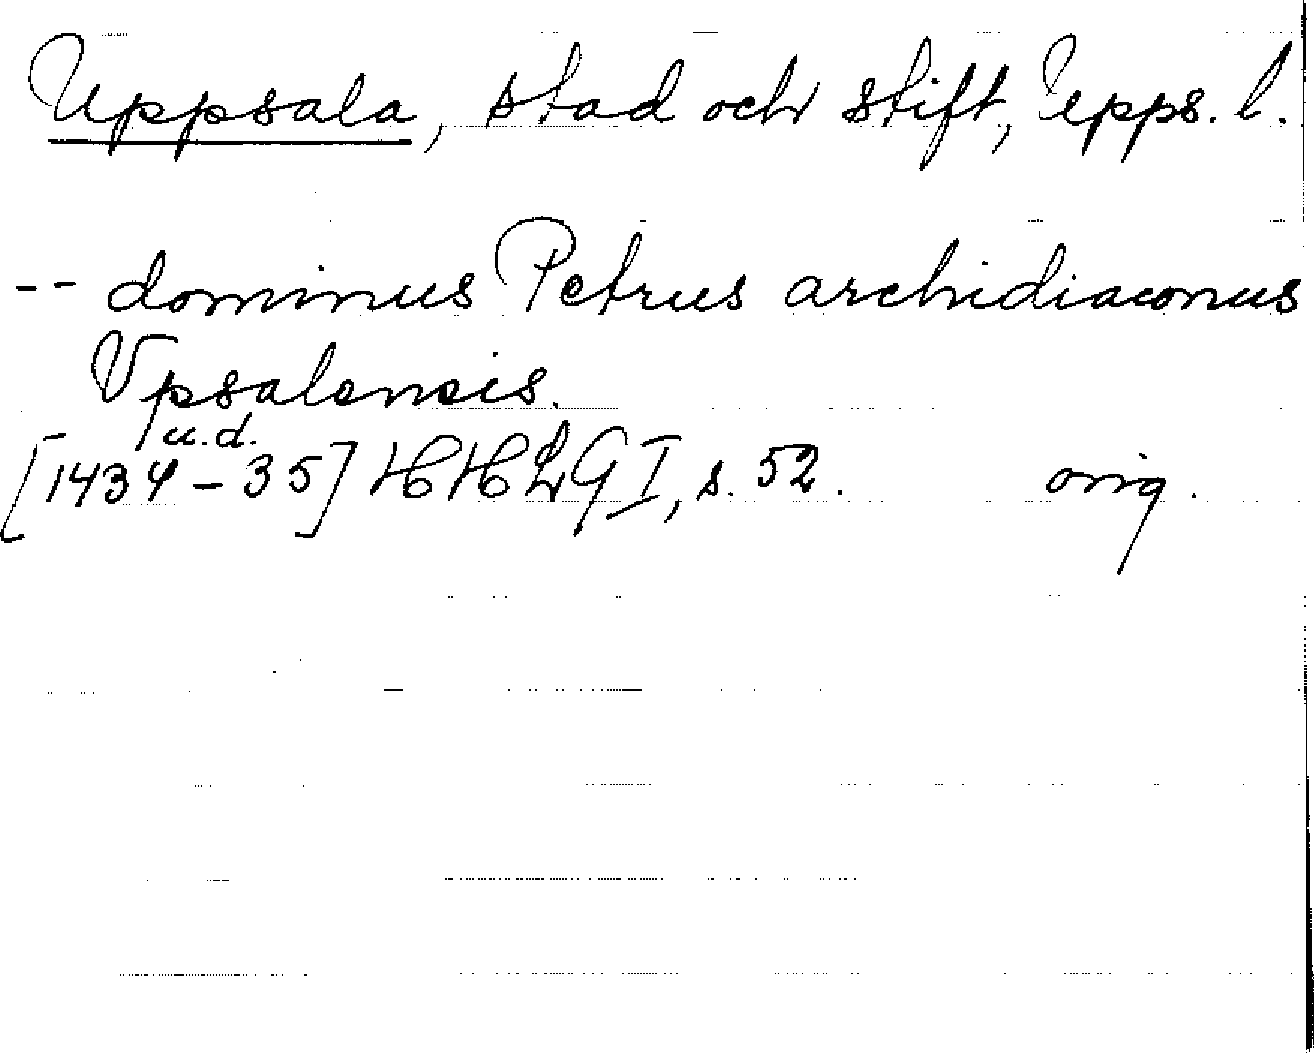 Uppsala, stad och stift, Upps. l.
-- dominus Petrus archidiaconus
Vpsalensis.
u.d.
[1434-35] HHLG I, s. 52. orig.